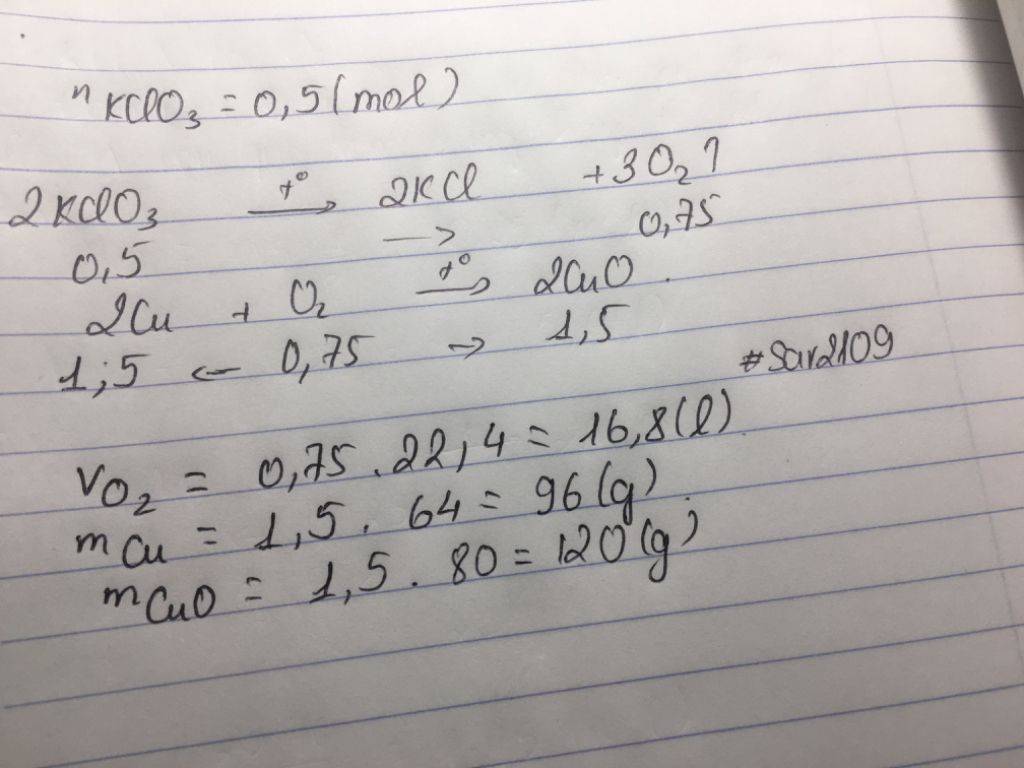 n KClO3 = 0,5 (mol)
2KClO3 t° → 2KCl + 3O2↑
0,5 → 0,75
2Cu + O2 t° → 2CuO.
1,5 ← 0,75 → 1,5
#Sar2109
VO2 = 0,75 . 22,4 = 16,8 (l)
mCu = 1,5 . 64 = 96 (g).
mCuO = 1,5 . 80 = 120 (g)